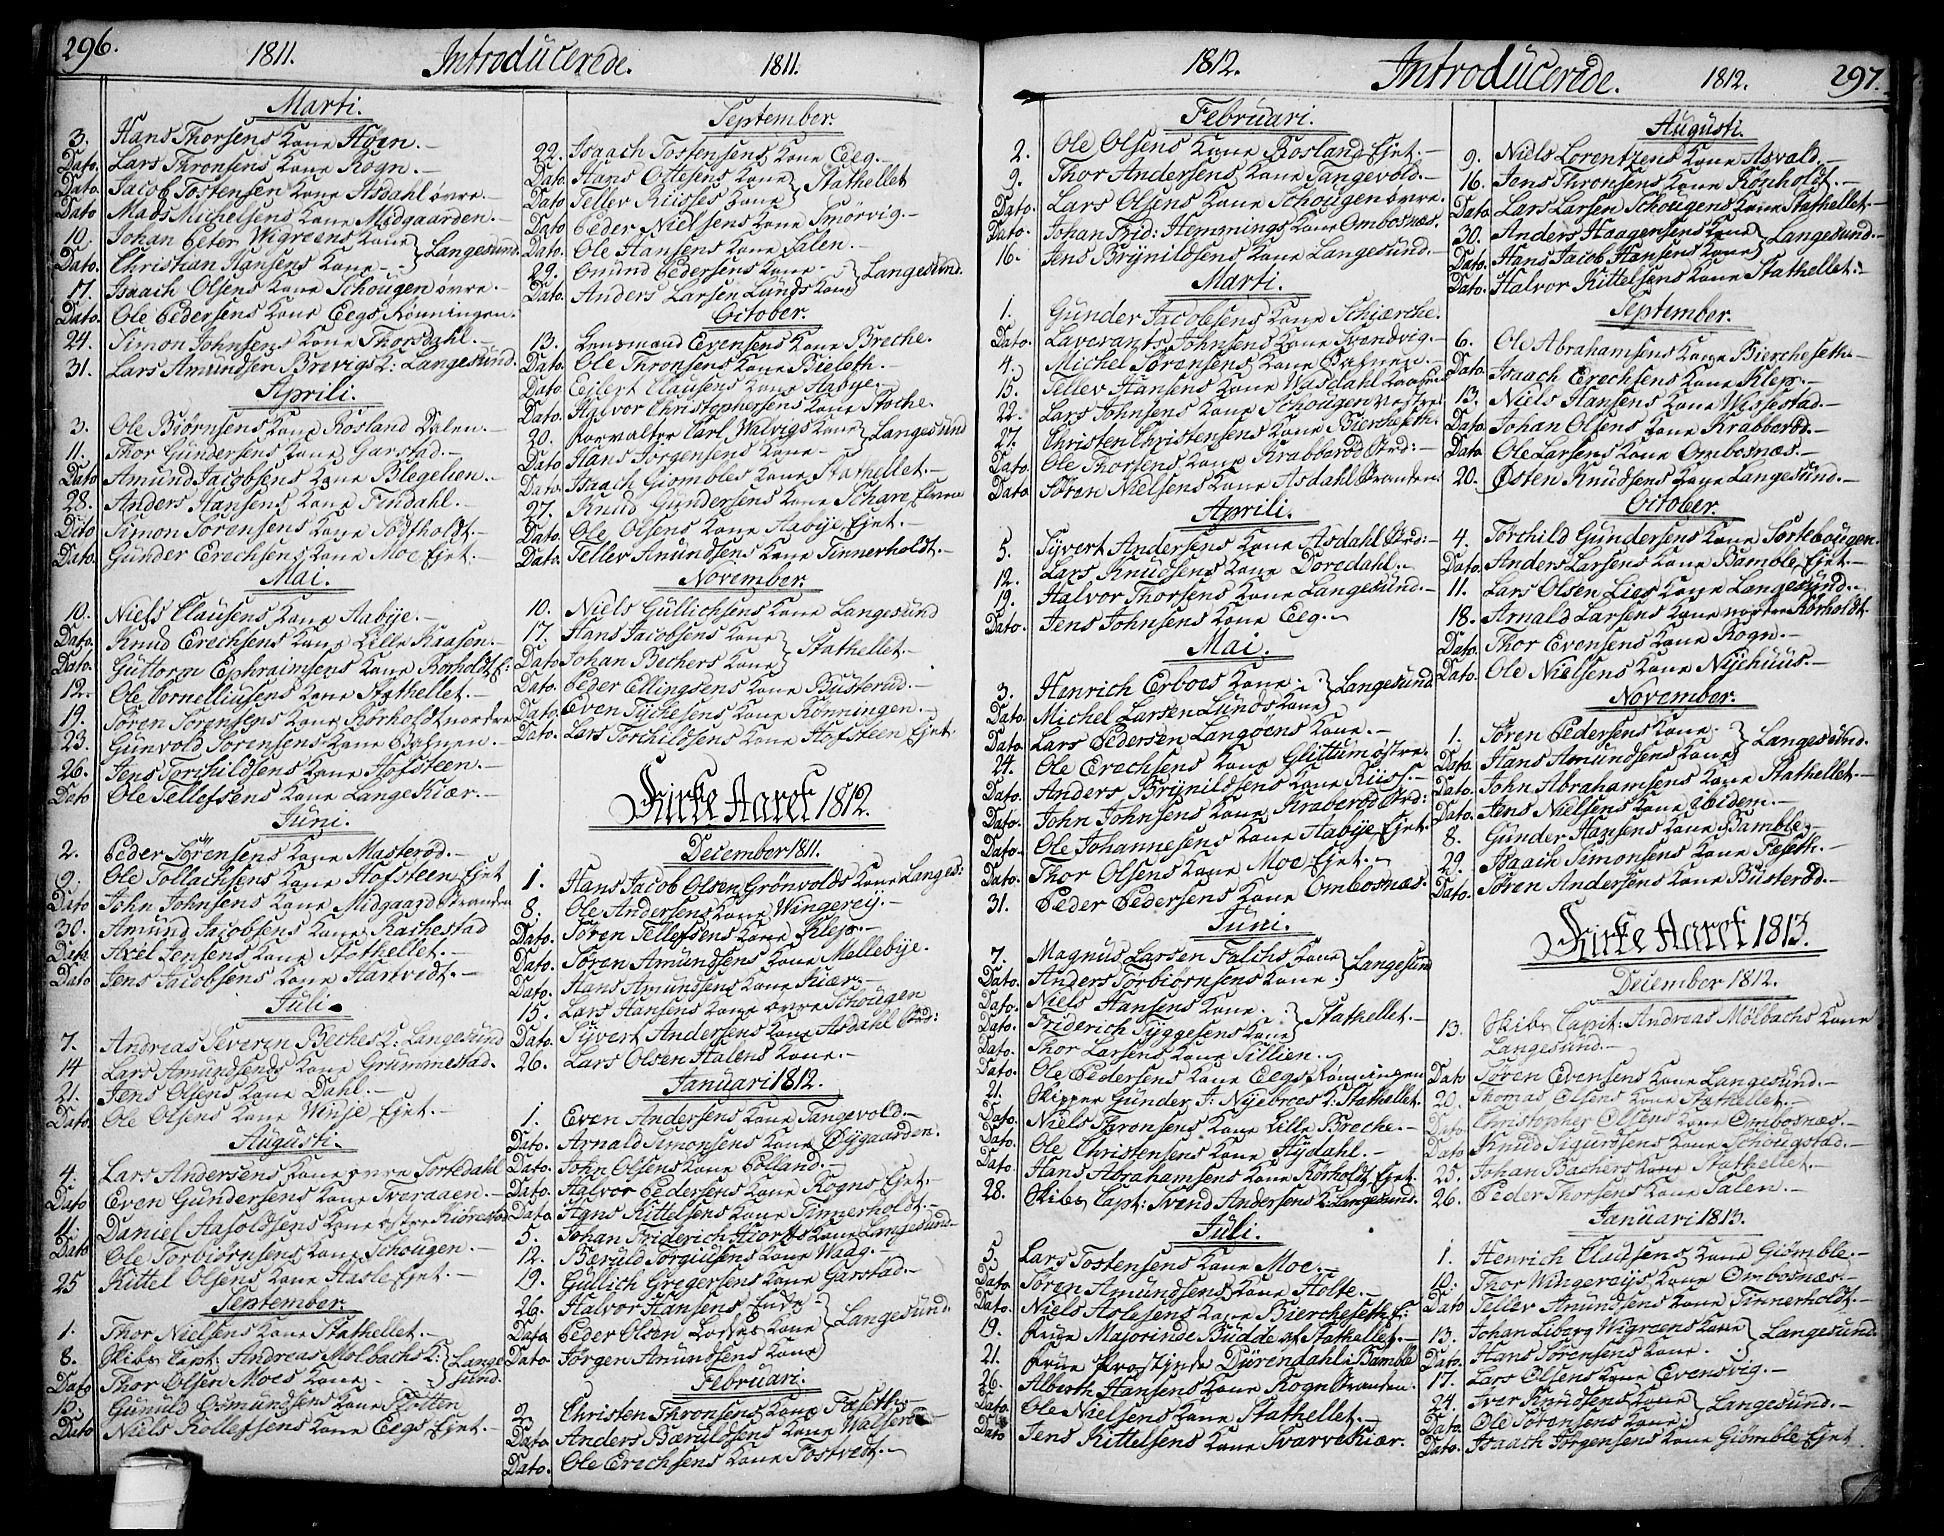 296.
1811. Introducerede. 1811.
Marti.
3. Hans Thorsens Kone Høen.-
Dato. Lars Thronsens Kone Rogn.-
Dato. Jacob Tostensen Kone Asdahl øvre.-
Dato Mads Michelsens Kone Midgaarden.-
10. Johan Peter Wigreens Kone
Dato. Christian Hansens Kone - } Langesund.
17. Isaach Olsens Kone Schougen øvre.-
Dato. Ole Pedersens Kone Eegs Rönningen.
24. Simon Johnsens Kone Thorsdahl.-
31. Lars Amundsen Brevigs K: Langesund.
Aprili.
3. Ole Biørnsens Kone Rosland Dalen.-
11. Thor Gundersens Kone Garstad.-
Dato Amund Jacobsens Kone Blegelien.-
28. Anders Hansens Kone Findahl.-
Dito Simon Sörensens Kone Södfholdt.-
Dato. Gunder Erechsens Kone Moe Ejet.-
Mai.
10. Niels Clausens Kone Aabije.-
Dato. Knud Erechsens Kone Lille Kaasen.-
Dato. Guttorm Ephraimsens Kone Rörholdt E:
12. Ole Cornelliusens Kone Stathellet.-
19. Sören Sörensens Kone Rörholdt nordre
23. Gunvold Sörensens Kone Bahnen.-
26. Jens Torchildsens Kone Hofsteen.-
Dato Ole Tellefsens Kone Lange Kiær.-
Juni.
2. Peder Sörensens Kone Masteröd.-
9. Ole Tollachsens Kone Hofsteen Ejet
Dato John Johnsens Kone Midgaard Stranden
30. Amund Jacobsens Kone Rachestad
Dato Axel Jensens Kone Stathellet.-
Dato Jens Jacobsens Kone Hartvedt.-
Juli.
7. Andreas Severin Beckes K: Langesund
14 Lars Amundsens Kone Grummestad.
21. Jens Olsens Kone Dahl.-
Dato. Ole Olsens Kone Ejet.-
Augusti.
4. Lars Andersens Kone øvre Torkedahl
Dato Even Gundersens Kone Tveraaen.-
11. Daniel Aasoldsens Kone østre
Dato Ole Torbiörnsens Kone Schougen.-
25 Kittel Olsens Kone Hasle Ejet.-
September.
1. Thor Nielsens Kone Stathellet.-
8. Skibs Capt: Andreas Molbachs K: } Lange
Dato Thor Olsen Moes Kone - } sund.
15. Gunuld Osmundsens Kone Slotten
Dato Niels Rollefsens Kone Eegs Ejet.-
September.
22. Isaach Tostensens Kone Eeg.-
Dato Hans Oelesens Kone } Stathellet
Dato Tellev Riisses Kone
Dato Peder Nielsens Kone Smörvig.-
Dato. Ole Hansens Kone Salen.-
29. Omund Pedersens Kone - } Langesund.
Dato. Anders Larsen Lunds Kone
October.
13. Evensens Kone Breche.
Dato. Ole Thronsens Kone Bieleth.-
Dato Ejlert Clausens Kone Aabye.-
Dato. Halvor Christophersens Kone Stoche.
20. Forvalter Carl Walvigs Kone } Langesund
Dato Hans Jörgensens Kone -
Dato. Isaach Giömbles Kone Stathellet.-
27. Knud Gundersens Kone Schare
Dato. Ole Olsens Kone Aabije Ejet.-
Dato. Tellev Amundsens Kone Tinnerholdt.-
November.
10. Niels Gullichsens Kone Langesund
17. Hans Jacobsens Kone } Stathellet.-
Dato Johan Bechers Kone
Dato. Peder Ellingsens Kone Busteröd.-
Dato. Even Tyckesens Kone Rönningen.-
Dato. Lars Torchildsens Kone Hofsteen Ejet.
Kirke Aaret 1812.
December 1811.
1. Hans Jacob Olsen Grönvolds Kone Langes:
8. Ole Andersens Kone Wingereij.-
Dato. Sören Tellefsens Kone Klep.-
Dato. Sören Amundsens Kone Mellebye.
Dato. Hans Amundsens Kone Kiær.-
15. Lars Hansens Kone øvre Schougen
Dato. Syvert Andersens Kone Asdahl Strd:
26. Lars Olsen Halens Kone.-
Januari 1812.
1. Even Andersens Kone Tangevold.-
Dato. Arnald Simonsens Kone Dijgaarden.
Dato. John Olsens Kone Polland.-
Dato. Halvor Pedersens Kone Rogns Ejet.-
Dato. Hans Kittelsens Kone Tinnerholdt.-
5. Johan Friderich Hiorths Kone Langesund.
12. Bæruld Torgiusens Kone Waag.-
19. Gullich Gregersens Kone Garstad.-
26. Halvor Hansens Enke } Langesund.
Dato Peder Olsen Lodses Kone
Dato. Jörgen Amundsens Kone
Februari.
2. Christen Thronsens Kone Fæseth.
Dato. Anders Bæruldsens Kone
Dato. Ole Erechsens Kone Tostvedt.-
1812. Introducerede. 1812. 297.
Februari.
2. Ole Olsens Kone Rosland Ejet.-
9. Thor Andersens Kone Tangevold.-
Dato. Lars Olsens Kone Schougen øvre.-
Dato. Johan Frid: Hemmings Kone Ombosnæs.
16. Jens Brynildsens Kone Langesund.-
Marti.
1. Gunder Jacobsens Kone Schiærche.
Dato. Laverants Johnsens Kone Svendvig.-
4. Michel Sörensens Kone Bahnen.-
15. Tellev Hansens Kone Wasdahl Kaasen
22. Lars Johnsens Kone Schougen vestre
27. Christen Christensens Kone Biercheseth.
Dato. Ole Thorsens Kone Krabberöd Strd:-
Dato Sören Nielsens Kone Asdahl Stranden.
Aprili.
5. Syvert Andersens Kone Asdahl Strd:
12. Lars Knudsens Kone Doredahl.-
19. Halvor Thorsens Kone Langesund.-
Dato. Jens Johnsens Kone Eeg.-
Mai.
3. Henrich Erboes Kone - } Langesund
Dato. Michel Larsen Lunds Kone
Dato. Lars Pedersen Langöens Kone.-
24. Ole Erechsens Kone Glittum østre.
Dato. Anders Brynildsens Kone Riiss.-
Dato. John Johnsens Kone Kraberöd Strd:
Dato. Ole Johannesens Kone Aabije Ejet.
Dato. Thor Olsens Kone Moe Ejet.-
31. Peder Pedersens Kone Ombosnæs.
Juni.
7. Magnus Larsen Falchs Kone } Langesund
Dato. Anders Torbiörnsens Kone
Dato. Niels Hansens Kone - } Stathellet.-
Dato. Friderich Tyggesens Kone
Dato. Thor Larsens Kone Tillien.-
Dato. Ole Pedersens Kone Eegs Rönningen
21. Skipper Gunder J: Nyebroes K: Stathellet.
Dato. Niels Thronsens Kone Lille Breche.-
Dato Ole Christensens Kone Flydahl.-
Dato Hans Abrahamsens Kone Rörholdt Ejet
28. Skibs Capt: Svend Andersens K: Langesund.
Juli.
5. Lars Tostensens Kone Moe.-
Dato. Sören Amundsens Kone Holte.-
Dato. Niels Aslesens Kone Biercheseth E:
19. Frue Majorinde Budde af Stathellet.-
21. Frue Prostjnde Dürendahl i Bamble
26. Alberth Hansens Kone Rogn Stranden.
Dato. Ole Nielsens Kone Stathellet.-
Dato Jens Kittelsens Kone Svarvekiær.
Augusti.
9. Niels Lorentzens Kone Asvald.-
16. Jens Thronsens Kone Rönholdt.-
Dato. Lars Larsen Schougens Kone Stathellet.-
30. Anders Haagensens Kone } Langesund.-
Dato. Hans Jacob Hansens Kone
Dato. Halvor Kittelsens Kone Stathellet.-
September.
6. Ole Abrahamsens Kone Biercheseth.-
Dato. Isaach Erechsens Kone Klep.-
13. Niels Hansens Kone Wissestad.-
Dato. Johan Olsens Kone Krabberöd.-
Dato. Ole Larsens Kone Ombosnæs.-
20. Østen Knudsens Kone Langesund.-
October.
4. Torchild Gundersens Kone Sortebougen.
Dato. Anders Larsens Kone Bamble Ejet.-
11. Lars Olsen Lies Kone Langesund.-
18. Arnald Larsens Kone Rörholdt
Dato. Thor Evensens Kone Rogn.-
Dato. Ole Nielsens Kone Nyehuus.-
November.
1. Sören Pedersens Kone - } Langesund.
Dato. Hans Amundsens Kone
Dato. John Abrahamsens Kone Stathellet.-
Dato. Jens Nielsens Kone Eidem.-
8. Gunder Hansens Kone Bamble.-
29. Isaach Simonsens Kone Fæseth.-
Dato. Sören Andersens Kone Busteröd.-
Kirke Aaret 1813.
December 1812.
13. Skibs Capit: Andreas Mölbachs Kone
Langesund.-
Dato Sören Evensens Kone Langesund.-
20. Thomas Olsens Kone Stathellet.-
Dato Christopher Olsens Kone Ombosnæs.-
Dato Knud Sigurdsens Kone Schougstad.-
25. Johan Bachers Kone Stathellet.-
26. Peder Thorsens Kone Salen.-
Januari 1813.
1. Henrich Clausens Kone Giömble.-
10. Thor Wingereijs Kone Ombosnæs.-
Dato Tellev Amundsens Kone Tinnerholdt.-
13. Johan Liborg Wigreens Kone } Langesund.
Dato. Hans Sörensens Kone.
17. Lars Olsens Kone Evensvig.-
24. Iver Knudsens Kone } Langesund.-
Dato. Ole Sörensens Kone
Dato. Isaach Jörgensens Kone Giömble Ejet